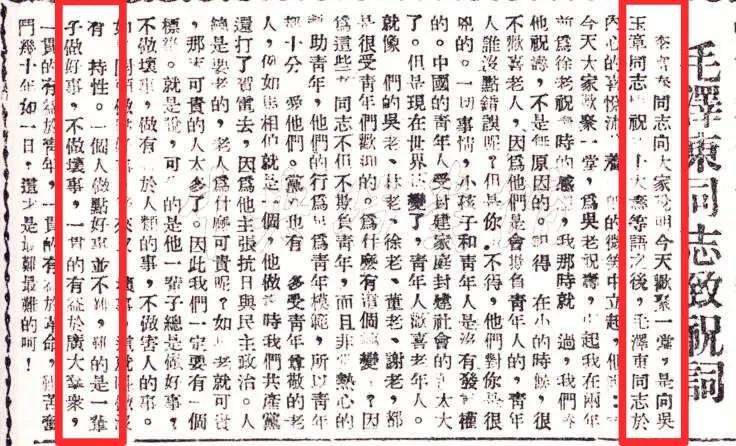 毛澤東同志致祝詞
李富春同志向大家說明今天歡聚一堂，是向吳
玉章同志祝大壽等語之後，毛澤東同志於
內心的喜悅流着的微笑中立起，他說：
今天大家歡聚一堂，爲吳老祝壽，起我在兩年
前爲徐老祝壽時的感，我那時就過，我們
他祝壽，不是無原因的。記得在小的時候，很
不歡喜老人，因爲他們是會欺負青年人的，青年
人誰沒點錯誤呢？但是你不得，他們對你是很
兇的。一切事情，小孩子和青年人是沒有發權
的。中國的青年人受封建家庭封建社會的太大
了。但是現在世界變了，青年人歡喜老年人。
就像們的吳老、林老、徐老、董老、謝老，都
是很受青年們歡迎的。爲什麼有這個變？因
爲這些同志不但不欺負青年，而且非熱心的
幫助青年，他們的行爲足爲青年模範，所以青年
都十分愛他們。黨也有多受青年尊敬的老
人，例如馬相伯就是一個，他做時我們共產黨
還打了賀電去，因爲他主張抗日與民主政治。人
總是要老的，老人爲什麼可貴呢？如老就可貴
，那可貴的人太多了。因此我們一定要有一個
標準。就是說，可的是他一輩子總是做好事，
不做壞事，做有於人類的事，不做害人的事。
如開頭做好事，後來又壞事，這就叫做沒
有持性。一個人做點好事並不難，難的是一輩
子做好事，不做壞事，一貫的有益於廣大羣衆，
一貫的有益於青年，一貫的有益於革命，艱苦奮
鬥幾十年如一日，這才是最難最難的呵！